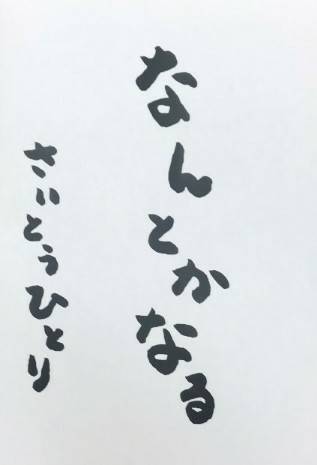 なんとかなる
さいとうひとり